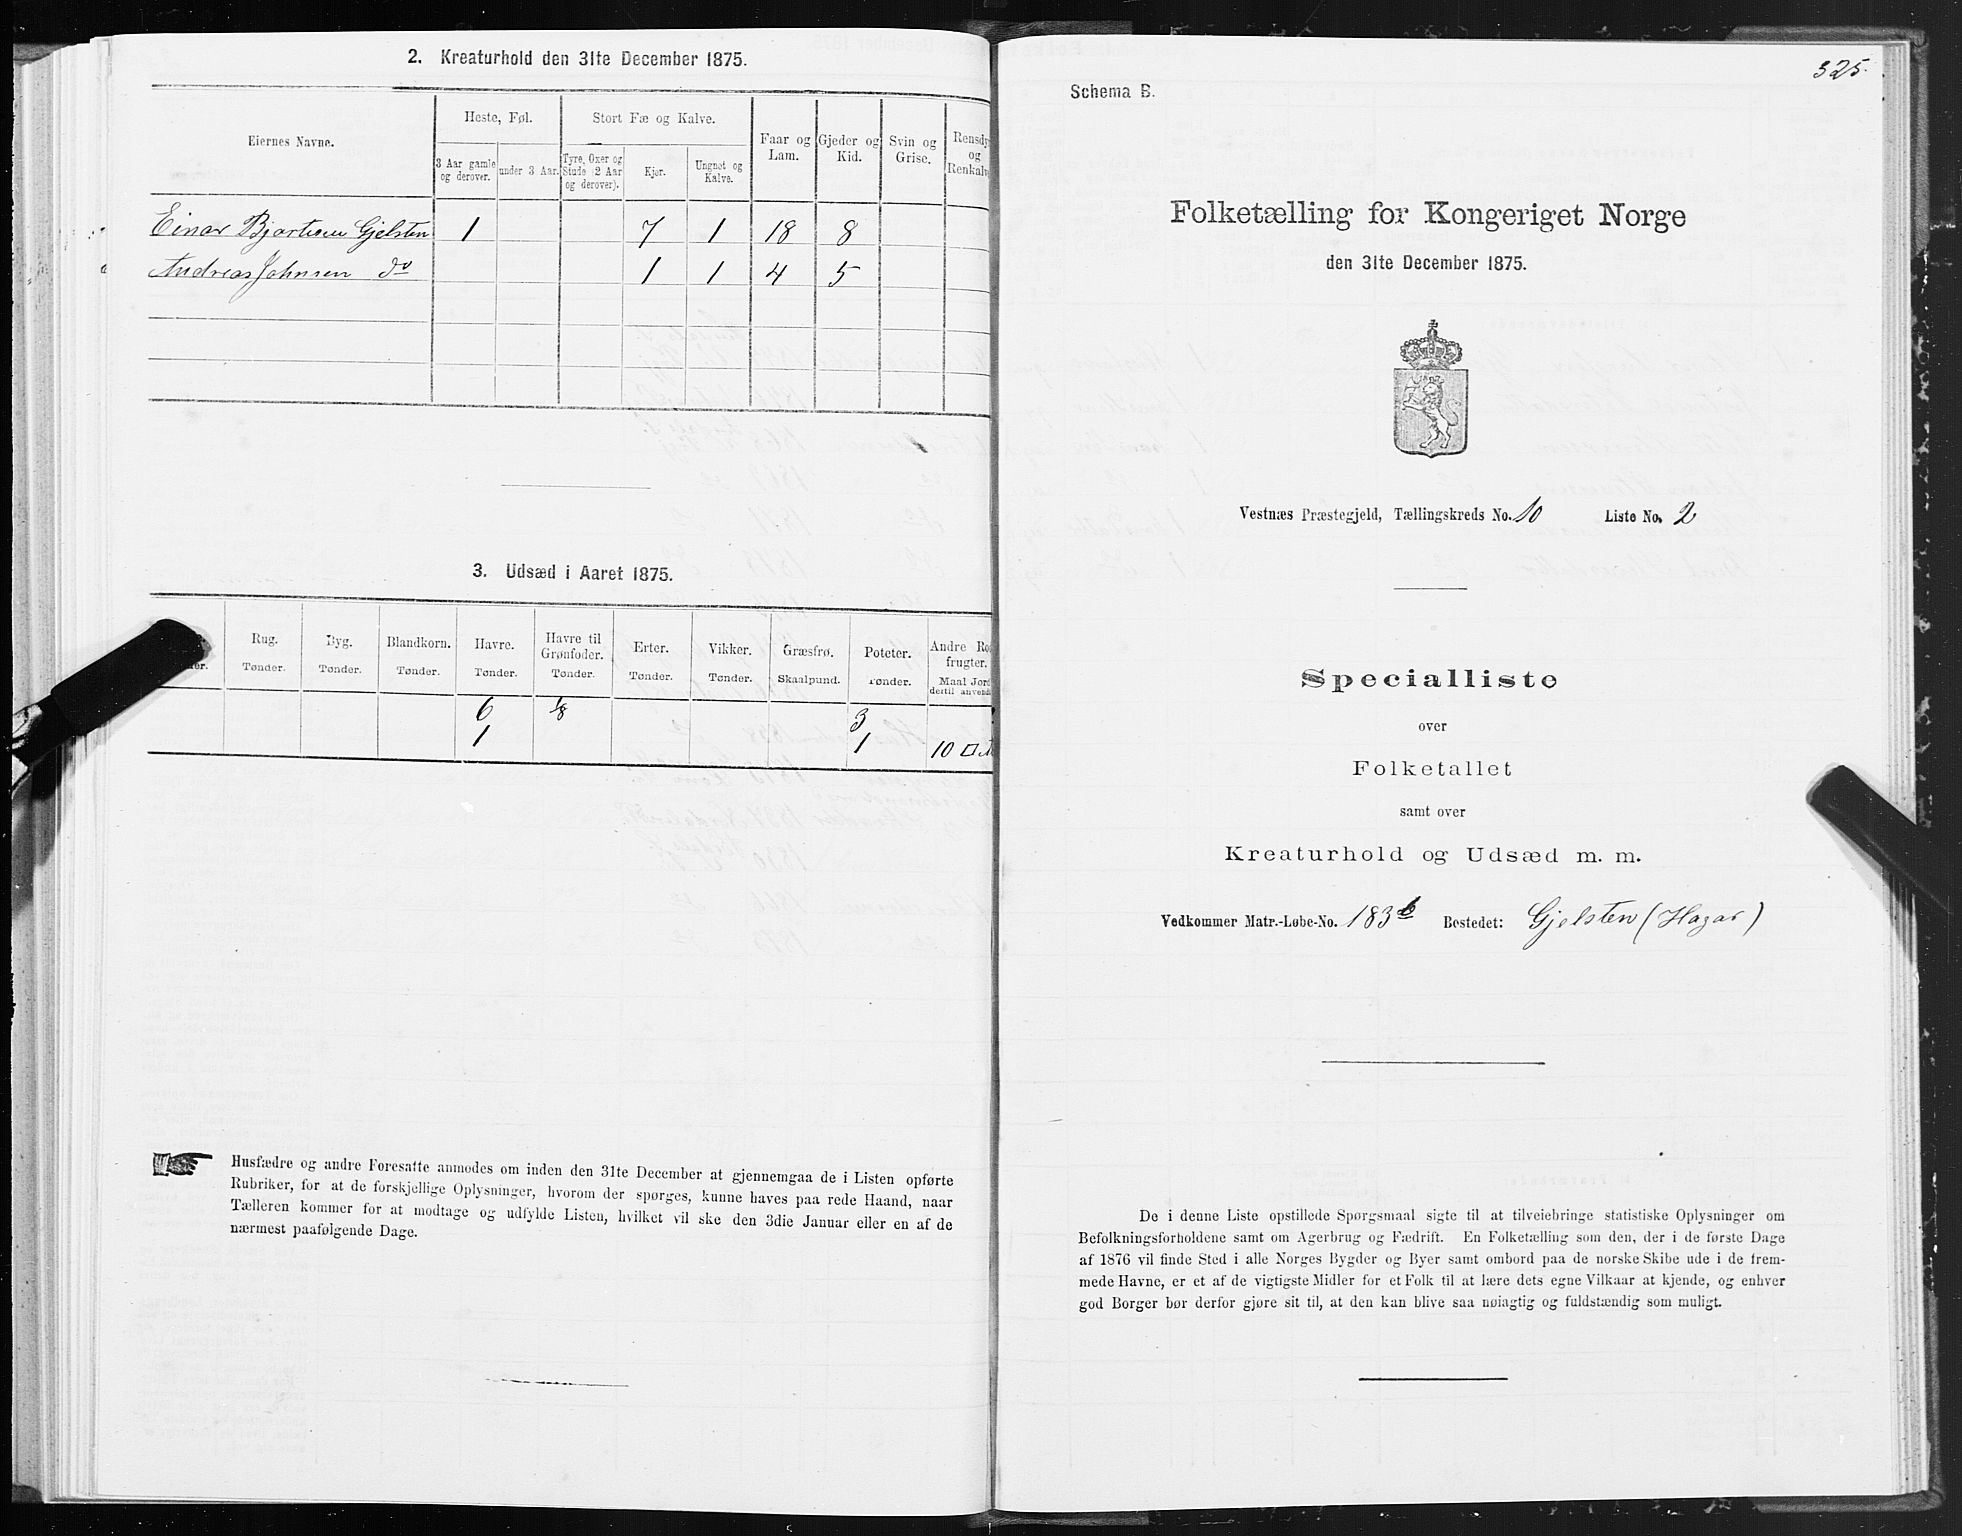 2. Kreaturhold den 31te December 1875.
Eiernes Navne.
Heste, Føl.
Stort Fæ og Kalve.
Faar og Lam.
Gjeder og Kid.
Svin og Grise.
Rensdy og Renkalv
3 Aar gamle og derover.
under 3 Aar.
Tyre, Oxer og Stude (2 Aar og derover).
Kjør.
Ungnøt og Kalve.
Einar Gjelsten 1 7 1 18 8
Andreas Johnsen do 1 1 4 5
3. Udsæd i Aaret 1875.
Rug. Byg. Blandkorn. Havre. Havre til Grønfoder. Erter. Vikker. Græsfrø. Poteter. Andre Ro frugter.
der. Tønder. Tønder. Tønder. Tønder. Tønder. Tønder. Tønder. Skaalpund. Tønder. Maal Jord dertil anvend
6 1/8 3
1 1 10
Husfædre og andre Foresatte anmodes om inden den 31te December at gjennemgaa de i Listen opførte
Rubriker, for at de forskjellige Oplysninger, hvorom der spørges, kunne haves paa rede Haand, naar
Tælleren kommer for at modtage og udfylde Listen, hvilket vil ske den 3die Januar eller en af de
nærmest paafølgende Dage.
325.
Schema B.
Folketælling for Kongeriget Norge
den 31te December 1875.
Vestnæs Præstegjeld, Tællingskreds No. 10 Liste No. 2
Specialliste
over
Folketallet
samt over
Kreaturhold og Udsæd m. m.
Vedkommer Matr.-Løbe-No. 183 b Bostedet: Gjelsten (Hagar)
De i denne Liste opstillede Spørgsmaal sigte til at tilveiebringe statistiske Oplysninger om
Befolkningsforholdene samt om Agerbrug og Fædrift. En Folketælling som den, der i de første Dage
af 1876 vil finde Sted i alle Norges Bygder og Byer samt ombord paa de norske Skibe ude i de frem-
mede Havne, er et af de vigtigste Midler for et Folk til at lære dets egne Vilkaar at kjende, og enhver
god Borger bør derfor gjøre sit til, at den kan blive saa nøiagtig og fuldstændig som muligt.